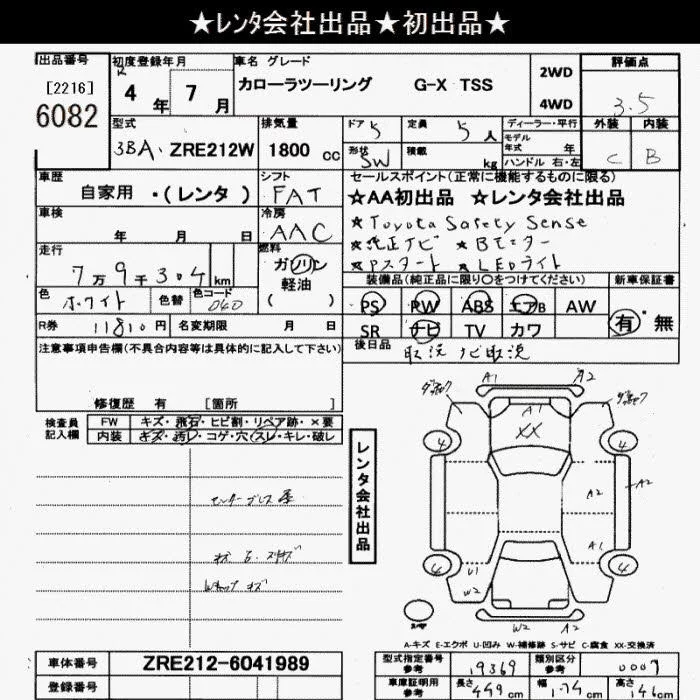 ★レンタ会社出品★初出品★
出品番号 初度登録年月 車名 グレード 評価点
[2216] R 4年 7月 カローラツーリング G-X TSS 2WD
6082 4WD 3.5
型式 排気量 ドア 5 定員 5人 ディーラー・平行 外装 内装
3BA・ZRE212W 1800cc 形状 SW 積載 kg モデル年式 年 C B
ハンドル 右・左
車歴 シフト セールスポイント(正常に機能するものに限る)
自家用 ・(レンタ) FAT ★AA初出品 ★レンタ会社出品
車検 年 月 日 冷房 AAC ★Toyota Safety Sense
★純正ナビ ★Bモニター
走行 7万9千304km 燃料 ガソリン 軽油 ( ) ★Pスタート ★LEDライト
装備品(純正品に限り○をつけてください) 新車保証書
色 ホワイト 色替 色コード 040 PS PW ABS エアB AW 有・無
R券 11810円 名変期限 月 日 SR ナビ TV カワ
注意事項申告欄(不具合内容等は具体的に記入して下さい) 後日品 取説 ナビ取説
修復歴 有 [箇所 ]
検査員記入欄 FW キズ・飛石・ヒビ割・リペア跡・×要
内装 キズ・汚れ・コゲ・穴・スレ・キレ・破レ
レンタ会社出品
A1 A2
A1
XX
4 4
A2 A2
A1
4 U1 4
W2
W2 A2
A-キズ E-エクボ U-凹み W-補修跡 S-サビ C-腐食 XX-交換済
車体番号 ZRE212-6041989 型式指定番号 参考 19369 類別区分 参考 0007
登録番号 車庫証明用 参考 長さ 449cm 幅 174cm 高さ 146cm